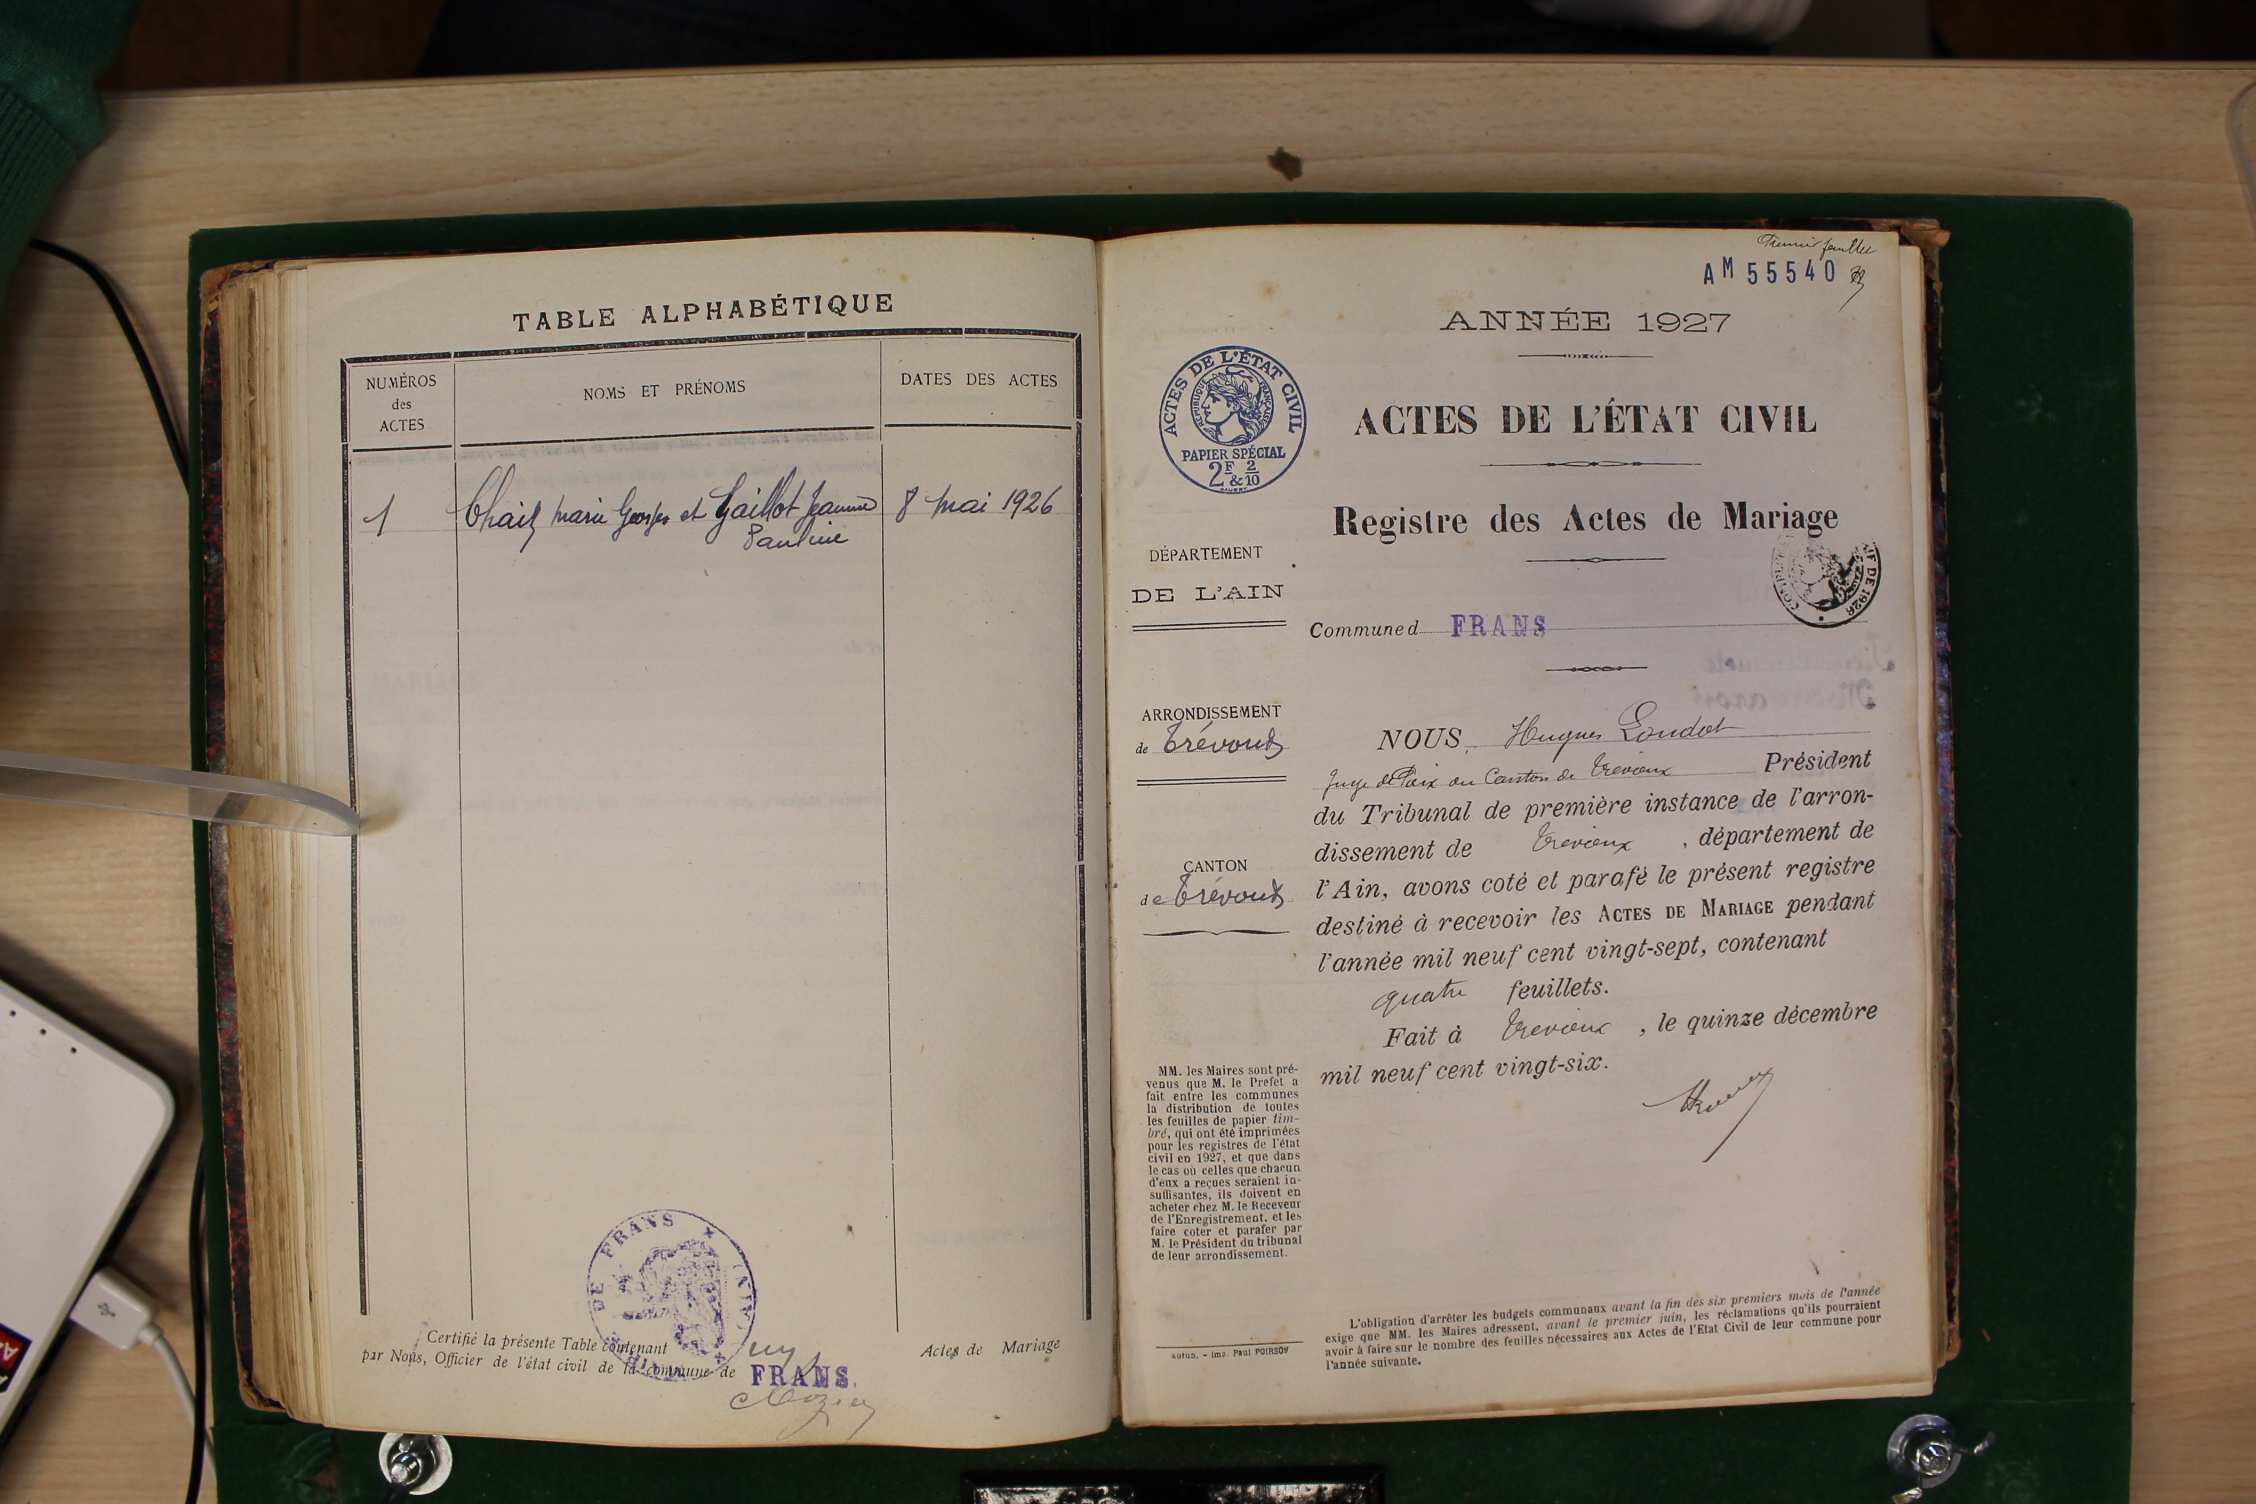 TABLE ALPHABÉTIQUE
NUMÉROS
des
ACTES
NOMS ET PRÉNOMS
DATES DES ACTES
1 Chaiz Marie Georges et Gaillot Jeanne 8 Mai 1926
Pauline
DE FRANS
(AIN)
MAIRIE
Certifié la présente Table contenant Actes de Mariage
par Nous, Officier de l'état civil de la commune de FRANS.
Premier feuillet
AM 55540
ANNÉE 1927
ACTES DE L'ÉTAT CIVIL
RÉPUBLIQUE FRANÇAISE
PAPIER SPÉCIAL
2F & 2/10
ACTES DE L'ÉTAT CIVIL
Registre des Actes de Mariage
DÉPARTEMENT
DE L'AIN
DE 1926
Commune d FRANS
ARRONDISSEMENT
de Trévoux
CANTON
de Trévoux
NOUS, Hugues Loudot
Juge de Paix du Canton de Trévoux Président
du Tribunal de première instance de l'arron-
dissement de Trévoux, département de
l'Ain, avons coté et parafé le présent registre
destiné à recevoir les ACTES DE MARIAGE pendant
l'année mil neuf cent vingt-sept, contenant
quatre feuillets.
Fait à Trévoux, le quinze décembre
mil neuf cent vingt-six.
MM. les Maires sont pré-
venus que M. le Prefet a
fait entre les communes
la distribution de toutes
les feuilles de papier tim-
bré, qui ont été imprimées
pour les registres de l'état
civil en 1927, et que dans
le cas où celles que chacun
d'eux a reçues seraient in-
suffisantes, ils doivent en
acheter chez M. le Receveur
de l'Enregistrement, et les
faire coter et parafer par
M. le Président du tribunal
de leur arrondissement.
Autun. - Imp. Paul POIRSON
L'obligation d'arrêter les budgets communaux avant la fin des six premiers mois de l'année
exige que MM. les Maires adressent, avant le premier juin, les réclamations qu'ils pourraient
avoir à faire sur le nombre des feuilles nécessaires aux Actes de l'Etat Civil de leur commune pour
l'année suivante.